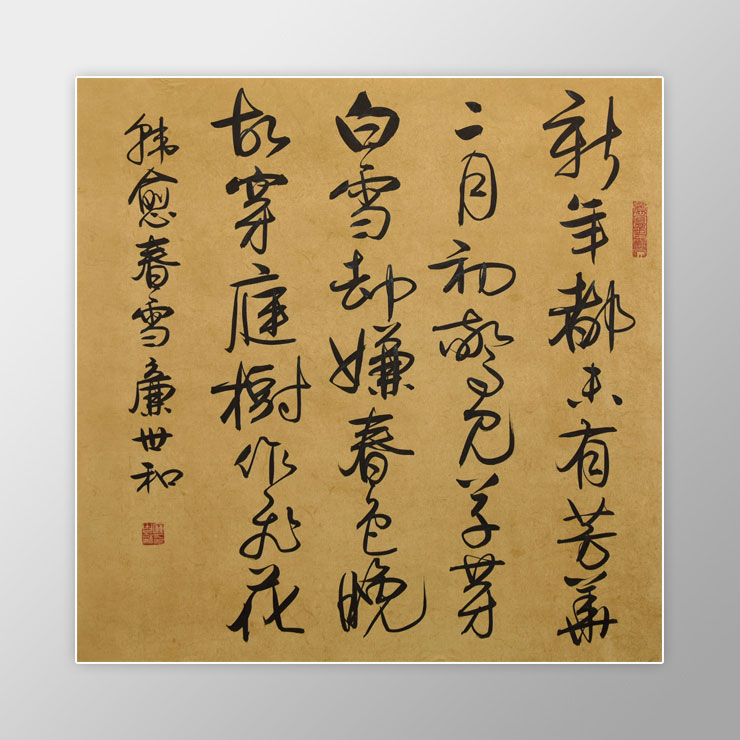 新年都未有芳華
二月初驚見草芽
白雪却嫌春色晚
故穿庭樹作飛花
韩愈春雪廉世和